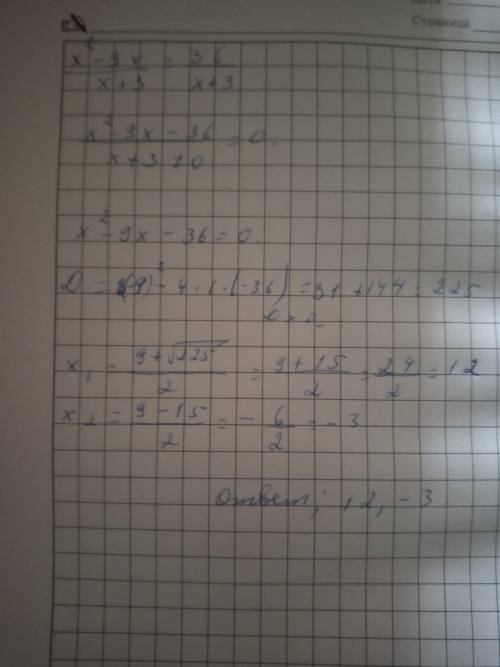 Дата
Страница
x² - 9x / x+3 = 36 / x+3
x² - 9x - 36 / x+3 ≠ 0 = 0.
x² - 9x - 36 = 0.
D = (-9)² - 4 · 1 · (-36) = 81 + 144 = 225
x₁ = 9+√225 / 2 = 9+15 / 2 = 24 / 2 = 12
x₂ = 9-15 / 2 = - 6 / 2 = -3
Ответ; 12, -3